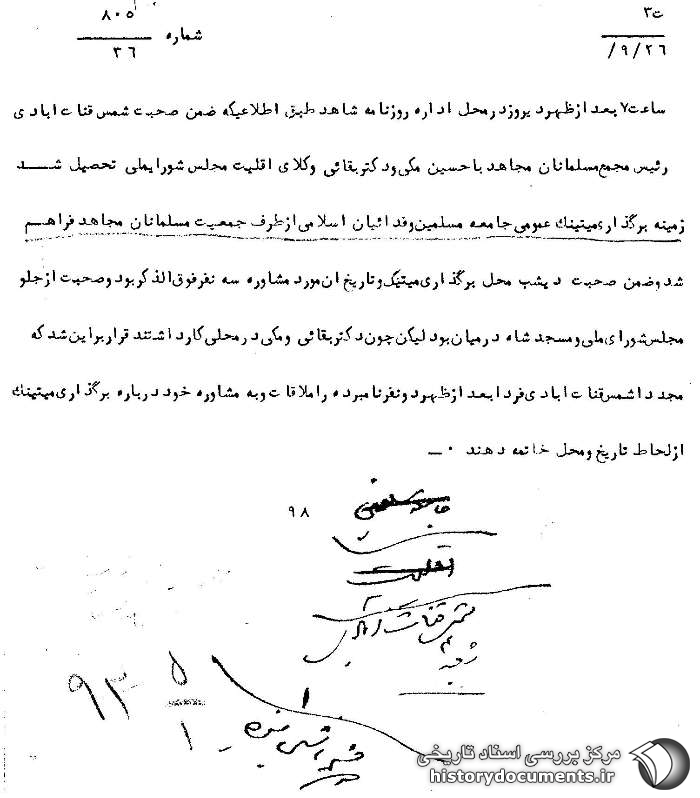 ت۳
۲۶/۹/
شماره ۸۰۵
۳۶
ساعت۷ بعد از ظهر دیروز در محل اداره روزنامه شاهد طبق اطلاعیکه ضمن صحبت شمس قنات ابادی
رئیس مجمع مسلمانان مجاهد با حسین مکی و دکتر بقائی وکلای اقلیت مجلس شورایملی تحصیل شد
زمینه برگذاری میتینك عمومی جامعه مسلمین و فدائیان اسلامی از طرف جمعیت مسلمانان مجاهد فراهم
شد و ضمن صحبت دیشب محل برگذاری میتینک و تاریخ ان مورد مشاوره سه نفر فوق الذکر بود و صحبت از جلو
مجلس شورای ملی و مسجد شاه درمیان بود لیکن چون دکتر بقائی و مکی در محلی کار داشتند قرار براین شد که
مجددا شمس قنات ابادی فردا بعد از ظهر دو نفر نامبرده را ملاقات و به مشاوره خود درباره برگذاری میتینك
از لحاظ تاریخ و محل خاتمه دهند ۰ ــ
۹۸
شمس قنات آبادی
۹۳ ۵
۱
مرکز بررسی اسناد تاریخی
historydocuments.ir